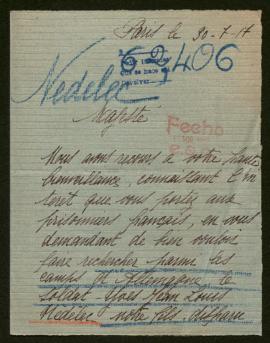 Paris le 30-7-17
406
Nedelec
Majesté
Fecho
Nous avons recours à votre haute
bienveillance, connaissant l'in
teret que vous portez aux
prisonniers français, en vous
demandant de bien vouloir
faire rechercher parmi les
camps le
soldat Yves Jean Louis
Nédélec notre fils disparu